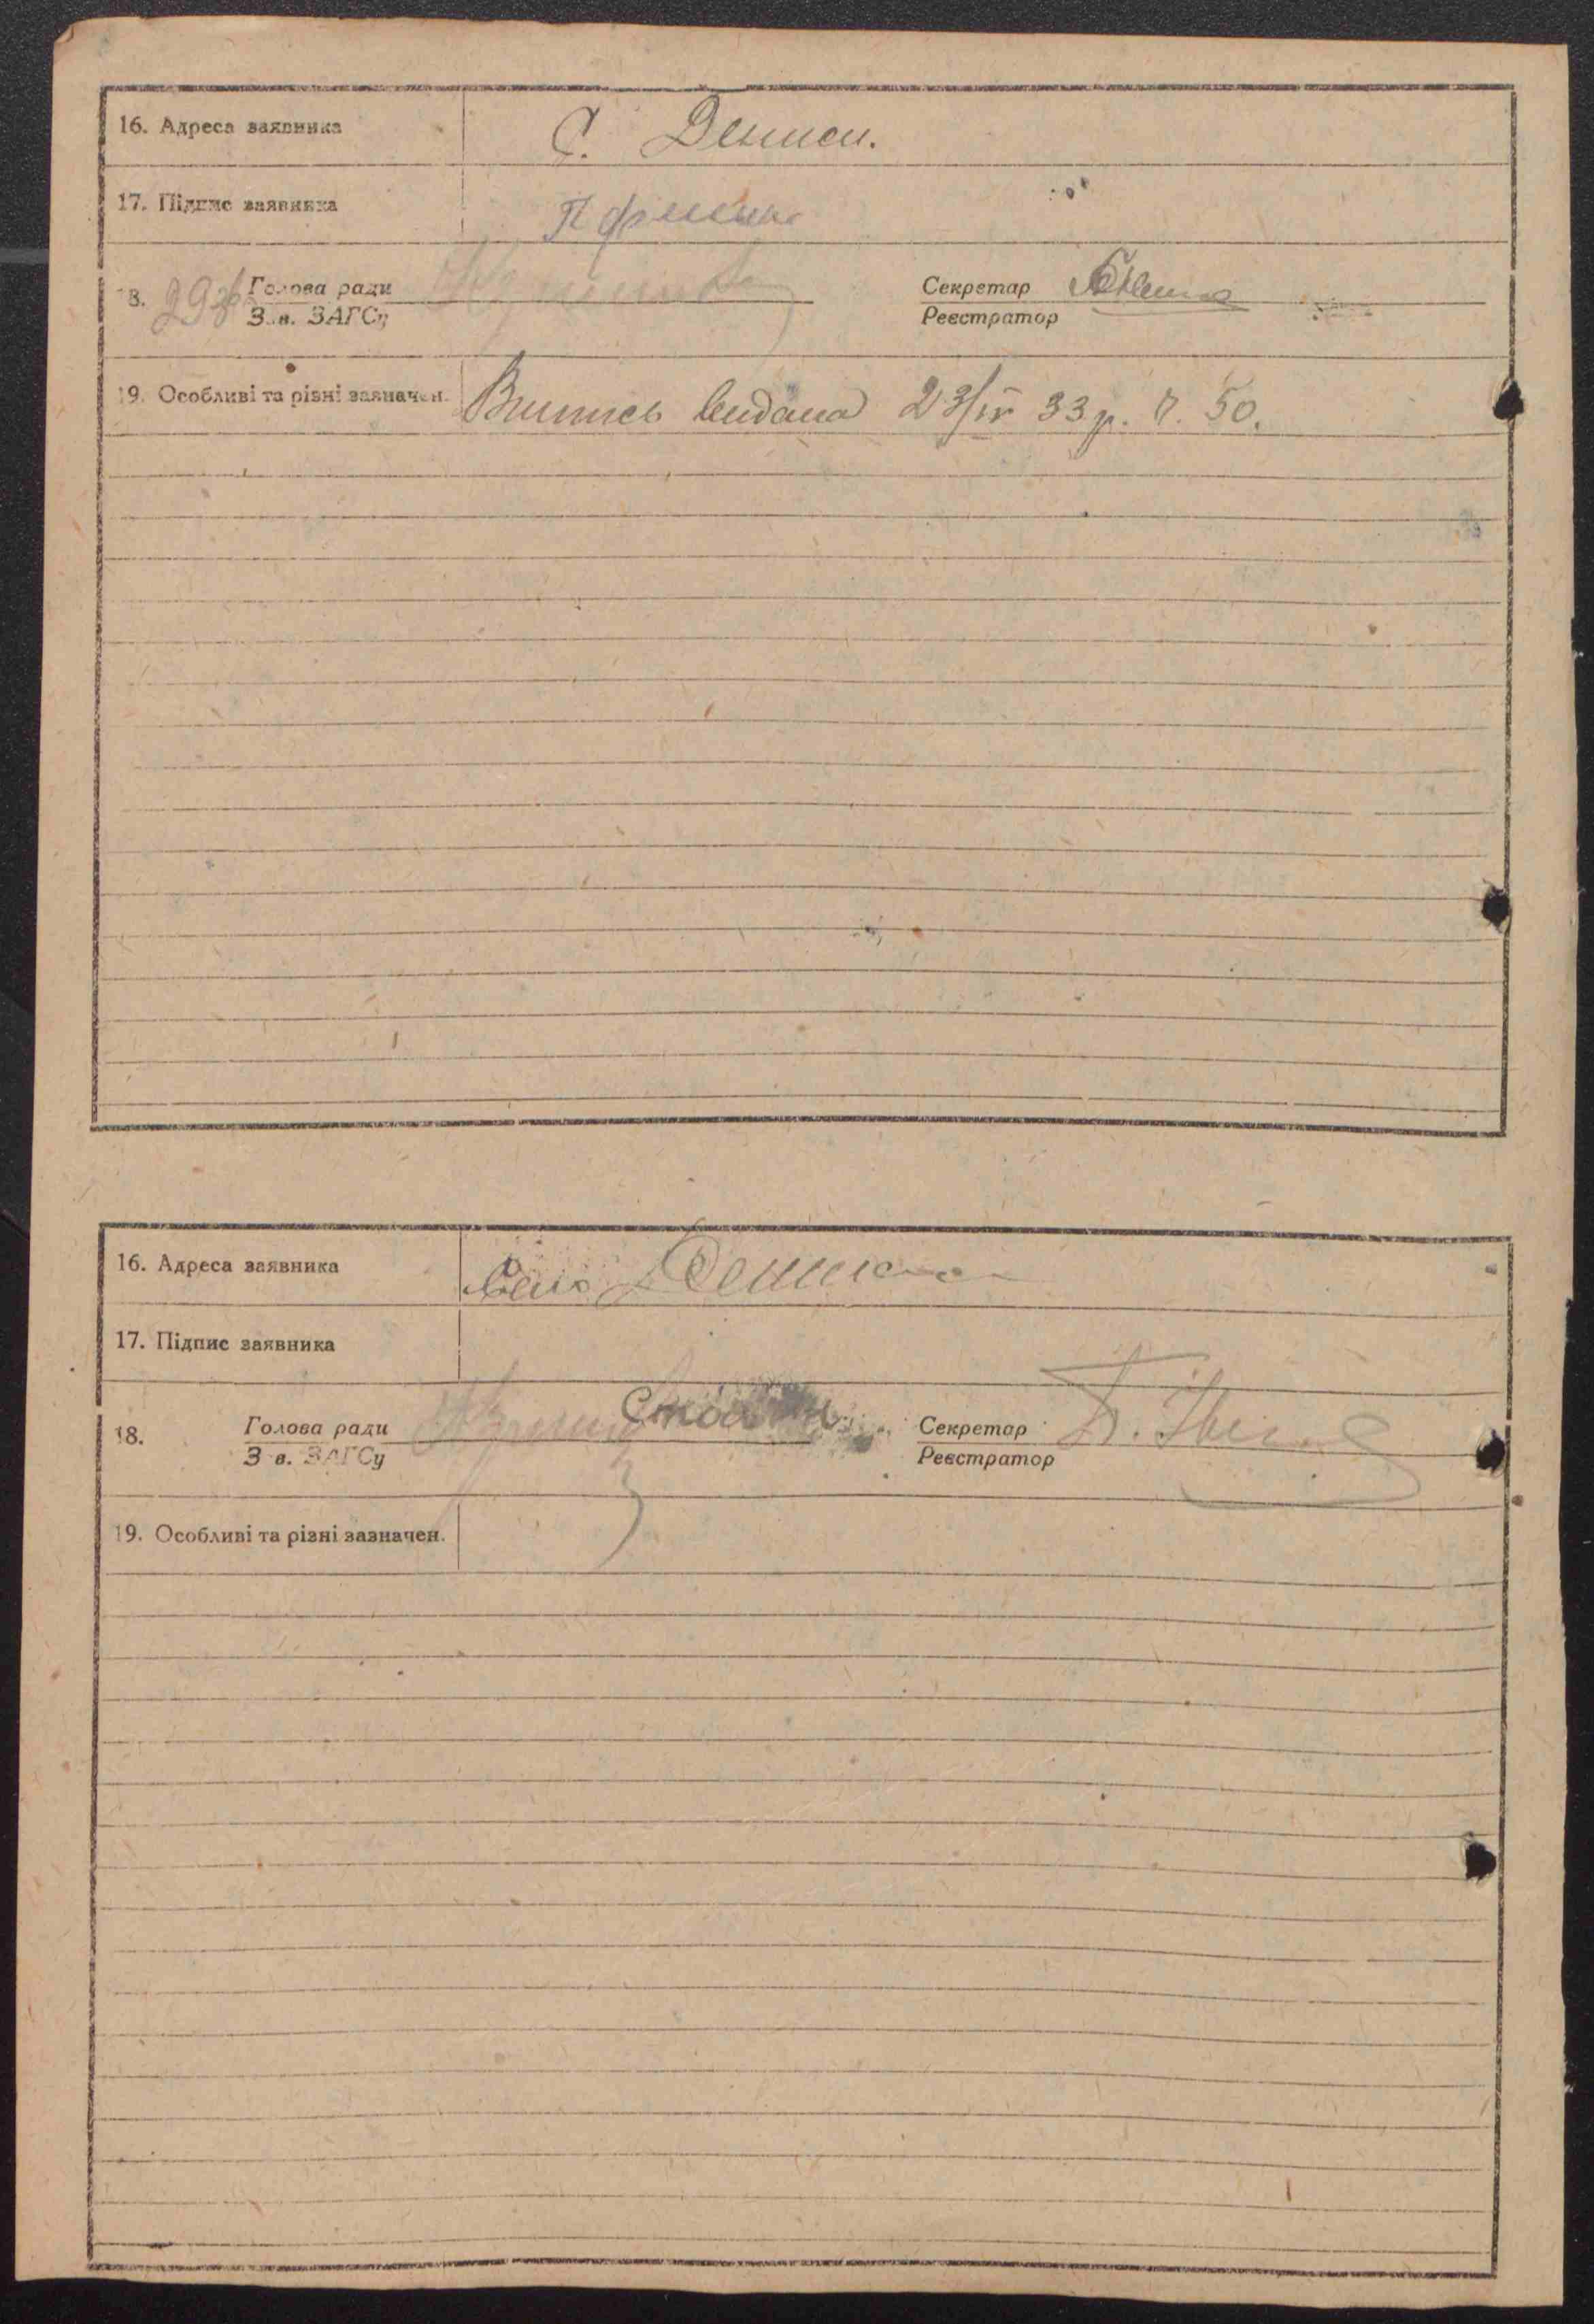 16. Адреса заявника С. Дениси.
17. Підпис заявника
18. Голова ради Секретар
Зав. ЗАГСу Реєстратор
19. Особливі та різні зазначен. Випись видана 23/IV 33 р. Ч. 50.
16. Адреса заявника Село Дениси
17. Підпис заявника
18. Голова ради Секретар
Зав. ЗАГСу Реєстратор
19. Особливі та різні зазначен.